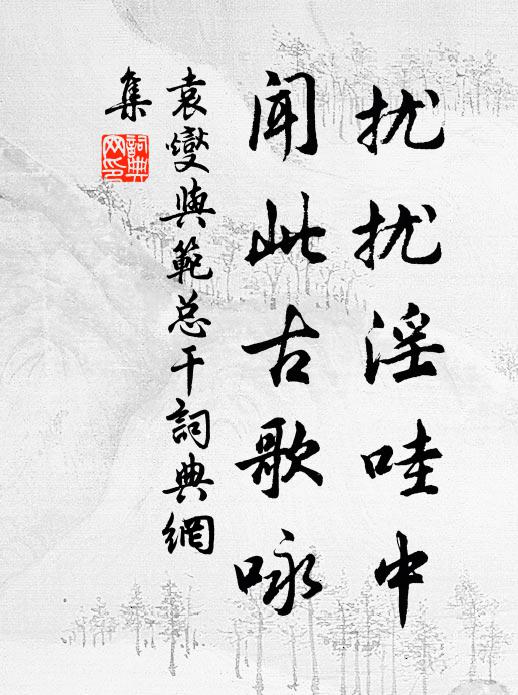 扰扰淫哇中
闻此古歌咏
袁燮與範总干詞典網
集
詞典網印